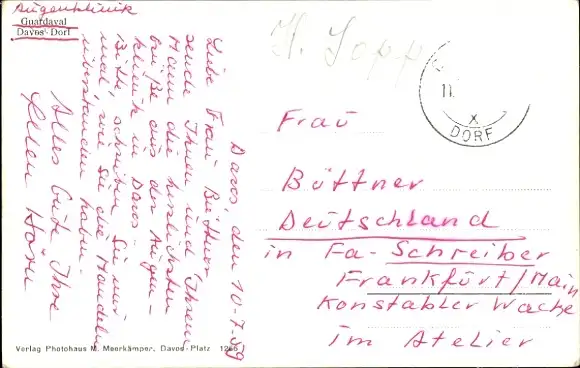 Augenklinik
Guardaval
Davos-Dorf
Davos, den 10-7.59
Liebe Frau Büttner
sende Ihnen und Ihrem
Mann die herzlichsten
Grüße aus der Augen-
klinik in Davos-
Bitte, schreiben Sie mir
mal, wie Sie die Mandeln
überstanden haben-
Alles Gute Ihre
Ellen Hörn
H. Sopp
11.
X
DORF
Frau
Büttner
Deutschland
in Fa- Schreiber
Frankfurt/Main
Konstabler Wache
im Atelier
Verlag Photohaus M. Meerkämper, Davos-Platz 1266